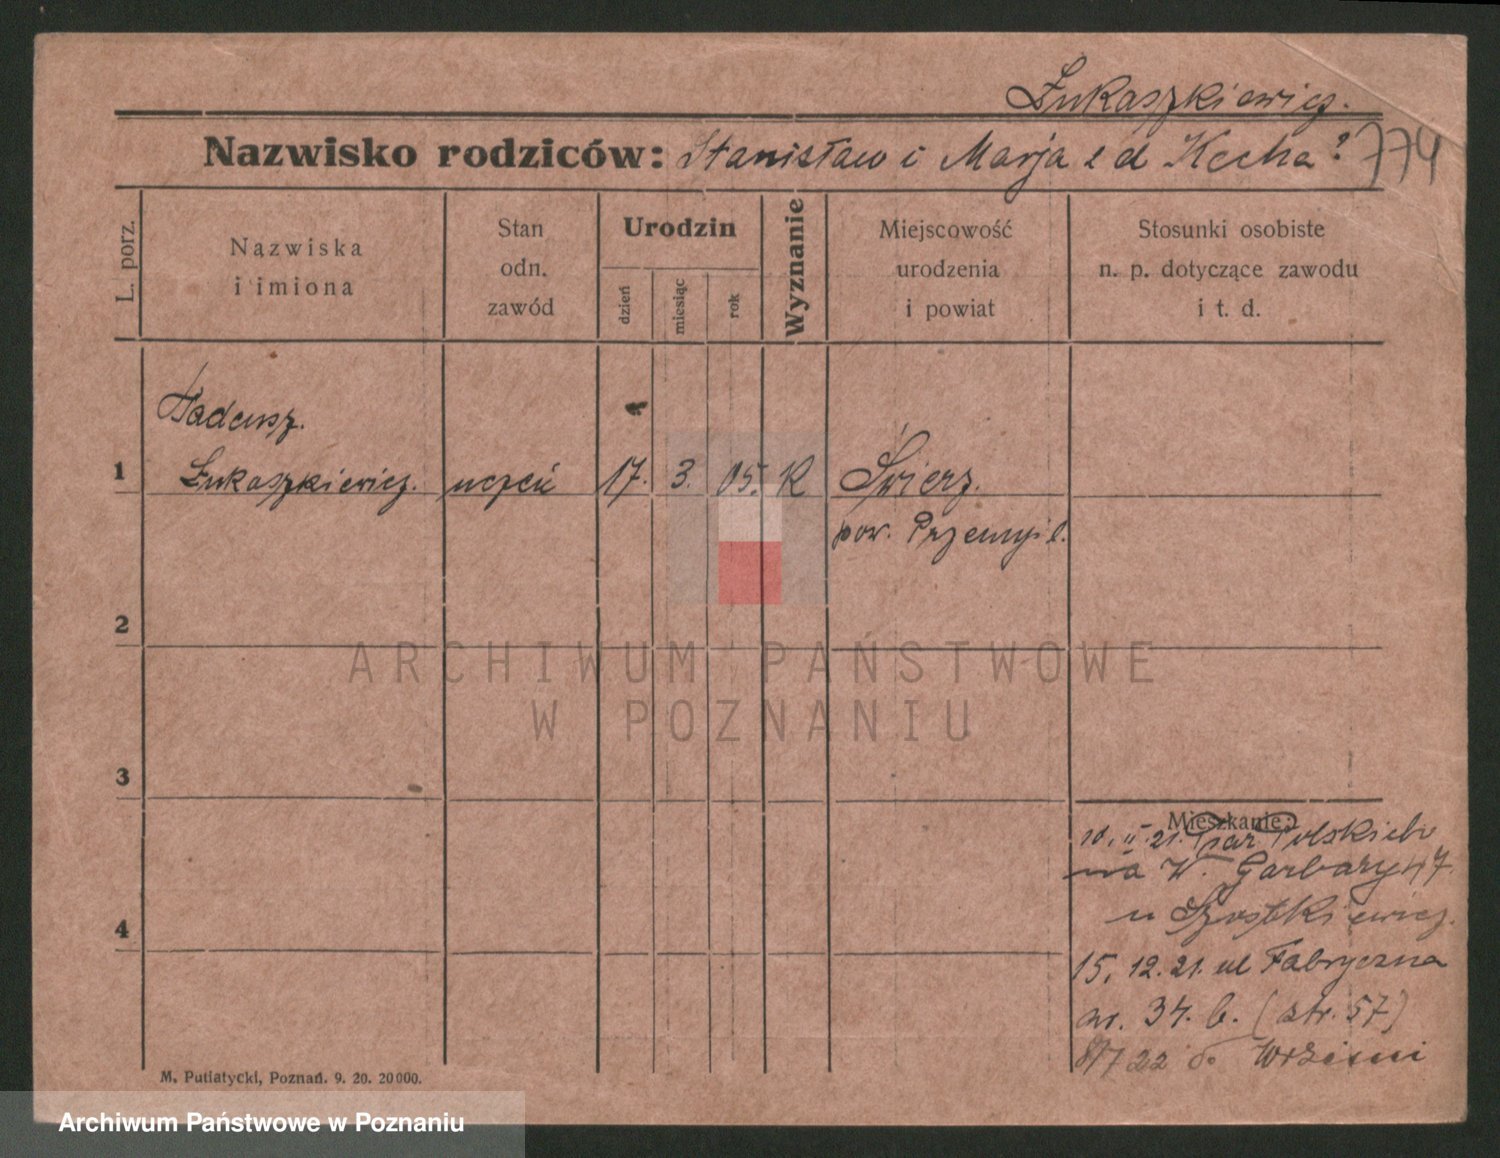 Łukaszkiewicz.
Nazwisko rodziców: Stanisław i Marja z d Kecha? 774
L. porz.
Nazwiska
i imiona
Stan
odn.
zawód
Urodzin
dzień
miesiąc
rok
Wyznanie
Miejscowość
urodzenia
i powiat
Stosunki osobiste
n. p. dotyczące zawodu
i t. d.
Tadeusz.
1 Łukaszkiewicz. uczeń 17. 3. 05. K Świerz.
pow. Przemyśl.
2
ARCHIWUM PAŃSTWOWE
W POZNANIU
3
Mieszkanie:
10. 11. 21.
W. Garbary 47.
u Szostkiewicz.
4
15. 12. 21. ul Fabryczna
nr. 34. b. (str. 57)
22 do Wrześni
M. Putiatycki, Poznań. 9. 20. 20000.
Archiwum Państwowe w Poznaniu